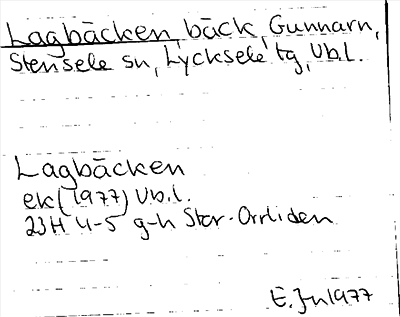 Lagbäcken, bäck, Gunnarn,
Stensele sn, Lycksele tg, Vb.l.
Lagbäcken
ek (1977) Vb.l.
23H 4-5 g-h Stor-Orrliden
E. Jn 1977